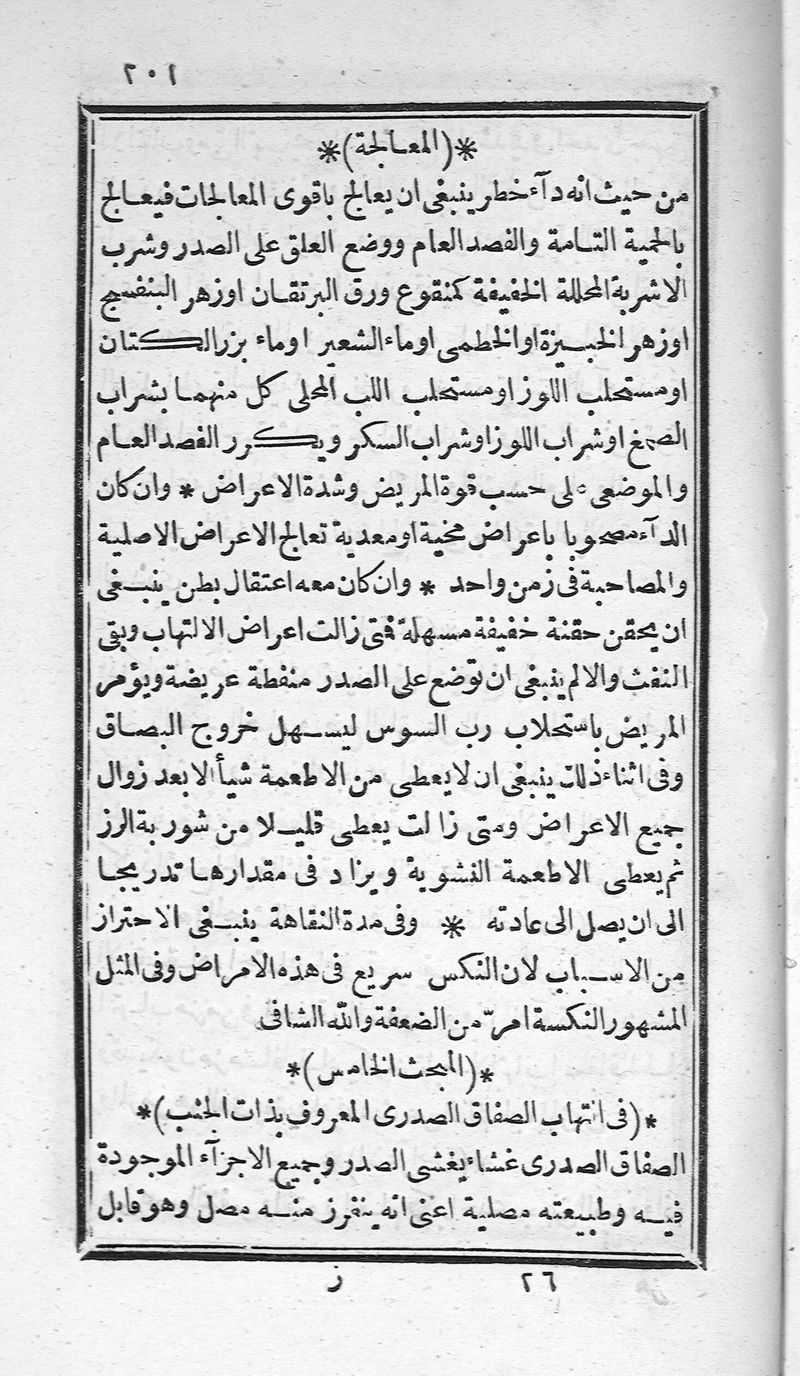 ٢٠١
*(المعالجة)*
من حيث انه دآء خطر ينبغى ان يعالج باقوى المعالجات فيعالج
بالحمية التامة والفصد العام ووضع العلق على الصدر وشرب
الاشربة المحللة الخفيفة كمنقوع ورق البرتقان اوزهر البنفسج
اوزهر الخبيزة اوالخطمى اوماء الشعير اوماء بزر الكتان
اومستحلب اللوز اومستحلب اللب المحلى كل منهما بشراب
الصمغ اوشراب اللوز اوشراب السكر ويكرر الفصد العام
والموضعى على حسب قوة المريض وشدة الاعراض * وان كان
الدآء مصحوبا باعراض مخية اومعدية تعالج الاعراض الاصلية
والمصاحبة فى زمن واحد * وان كان معه اعتقال بطن ينبغى
ان يحقن حقنة خفيفة مسهلة فمتى زالت اعراض الالتهاب وبقى
النفث والالم ينبغى ان توضع على الصدر منفطة عريضة ويؤمر
المريض باستحلاب رب السوس ليسهل خروج البصاق
وفى اثناء ذلك ينبغى ان لا يعطى من الاطعمة شيأ الا بعد زوال
جميع الاعراض ومتى زالت يعطى قليلا من شوربة الرز
ثم يعطى الاطعمة النشوية ويزاد فى مقدارها تدريجا
الى ان يصل الى عادته * وفى مدة النقاهة ينبغى الاحتراز
من الاسباب لان النكس سريع فى هذه الامراض وفى المثل
المشهور النكسة امرّ من الضعفة والله الشافى
*(المبحث الخامس)*
*(فى التهاب الصفاق الصدرى المعروف بذات الجنب)*
الصفاق الصدرى غشاء يغشى الصدر وجميع الاجزآء الموجودة
فيه وطبيعته مصلية اعنى انه ينفرز منه مصل وهو قابل
٢٦ ز